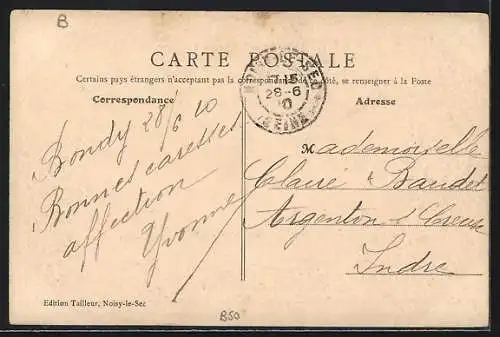 B
CARTE POSTALE
Certains pays étrangers n'acceptant pas la correspondance de ce côté, se renseigner à la Poste
Correspondance
Adresse
28-6
10
(SEINE)
Bondy 28/6 10
Bonnes caresses
affection
Yvonne
Mademoiselle
Claire Baudet
Argenton s/ Creuse
Indre
Edition Tailleur, Noisy-le-Sec
B50